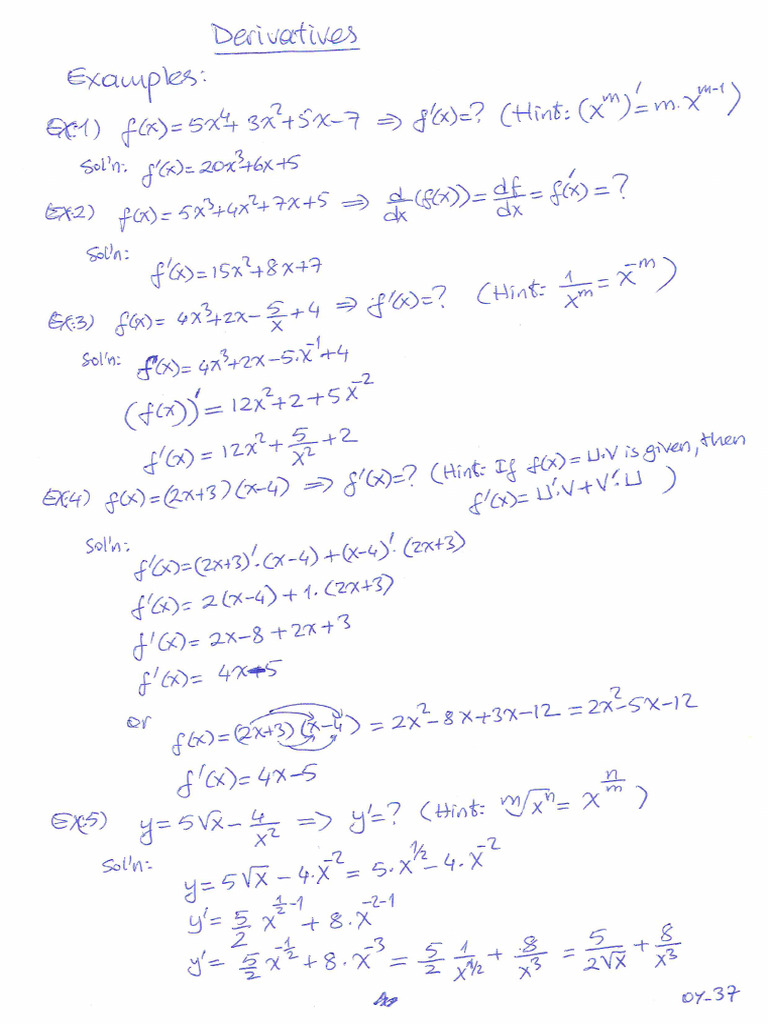 Derivatives
Examples:
Ex:1) f(x)=5x⁴+3x²+5x-7 ⇒ f'(x)=? (Hint: (x^m)'=m.x^(m-1))
Sol'n: f'(x)=20x³+6x+5
Ex:2) f(x)=5x³+4x²+7x+5 ⇒ d/dx (f(x))=df/dx=f'(x)=?
Sol'n:
f'(x)=15x²+8x+7
Ex:3) f(x)=4x³+2x-5/x+4 ⇒ f'(x)=? (Hint: 1/x^m=x^(-m))
Sol'n: f(x)=4x³+2x-5.x^(-1)+4
(f(x))'=12x²+2+5x^(-2)
f'(x)=12x²+5/x²+2
Ex:4) f(x)=(2x+3)(x-4) ⇒ f'(x)=? (Hint: If f(x)=U.V is given, then
f'(x)=U'.V+V'.U)
Sol'n:
f'(x)=(2x+3)'.(x-4)+(x-4)'.(2x+3)
f'(x)=2(x-4)+1.(2x+3)
f'(x)=2x-8+2x+3
f'(x)=4x-5
or
f(x)=(2x+3)(x-4)=2x²-8x+3x-12=2x²-5x-12
f'(x)=4x-5
Ex:5) y=5√x-4/x² ⇒ y'=? (Hint: ᵐ√(x^n)=x^(n/m))
Sol'n:
y=5√x-4.x^(-2)=5.x^(1/2)-4.x^(-2)
y'=5/2 x^(1/2-1)+8.x^(-2-1)
y'=5/2 x^(-1/2)+8.x^(-3)=5/2 1/x^(1/2)+8/x³=5/(2√x)+8/x³
OY-37